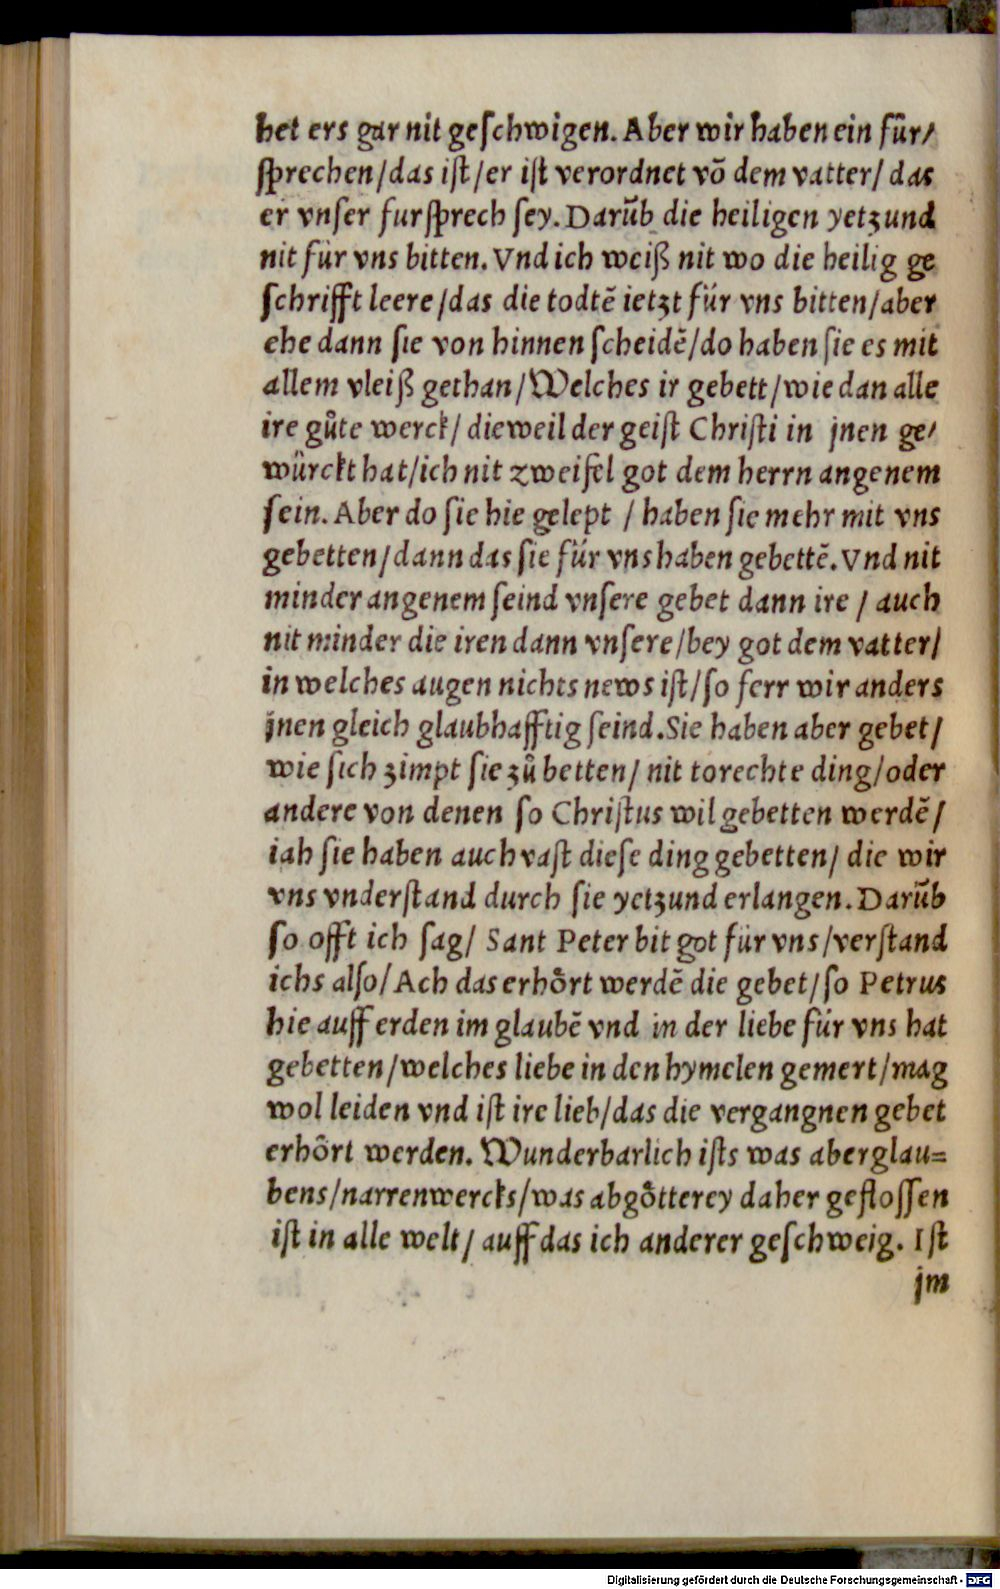 het ers gar nit geſchwigen. Aber wir haben ein für/
ſprechen/das iſt/er iſt verordnet võ dem vatter/ das
er vnſer furſprech ſey. Darũb die heiligen yetzund
nit für vns bitten. Vnd ich weiß nit wo die heilig ge
ſchrifft leere/das die todtẽ ietzt für vns bitten/aber
ehe dann ſie von hinnen ſcheidẽ/do haben ſie es mit
allem vleiß gethan/Welches ir gebett/wie dan alle
ire gůte werck/ dieweil der geiſt Chriſti in jnen ge/
würckt hat/ich nit zweifel got dem herrn angenem
ſein. Aber do ſie hie gelept / haben ſie mehr mit vns
gebetten/dann das ſie für vns haben gebettẽ. Vnd nit
minder angenem ſeind vnſere gebet dann ire / auch
nit minder die iren dann vnſere/bey got dem vatter/
in welches augen nichts news iſt/ſo ferr wir anders
jnen gleich glaubhafftig ſeind. Sie haben aber gebet/
wie ſich zimpt ſie zů betten/ nit torechte ding/oder
andere von denen ſo Chriſtus wil gebetten werdẽ/
iah ſie haben auch vaſt dieſe ding gebetten/ die wir
vns vnderſtand durch ſie yetzund erlangen. Darũb
ſo offt ich ſag/ Sant Peter bit got für vns/verſtand
ichs alſo/Ach das erhoͤrt werdẽ die gebet/ſo Petrus
hie auff erden im glaubẽ vnd in der liebe für vns hat
gebetten/welches liebe in den hymelen gemert/mag
wol leiden vnd iſt ire lieb/das die vergangnen gebet
erhoͤrt werden. Wunderbarlich iſts was aberglau=
bens/narrenwercks/was abgoͤtterey daher gefloſſen
iſt in alle welt/ auff das ich anderer geſchweig. Iſt
jm
Digitalisierung gefördert durch die Deutsche Forschungsgemeinschaft - DFG